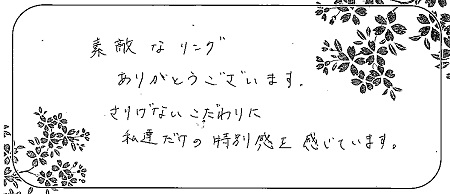 素敵なリング
ありがとうございます。
さりげないこだわりに
私達だけの特別感を感じています。